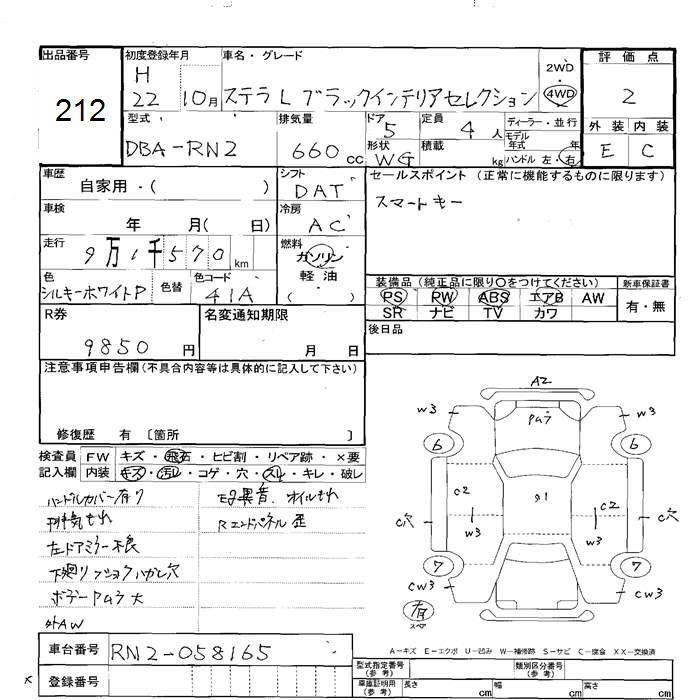 出品番号
212
初度登録年月
H
22 10月
車名・グレード
ステラL ブラックインテリアセレクション
2WD
4WD
評価点
2
外装 内装
E C
型式
DBA-RN2
排気量
660 cc
ドア
5
形状
WG
定員
4 人
積載
kg
ディーラー・並行
モデル
年式 年
ハンドル 左・右
車歴
自家用・( )
車検
年 月( 日)
走行
9万1千570 km
色
シルキーホワイトP
色替
色コード
41A
シフト
DAT
冷房
AC
燃料
ガソリン
軽油
( )
セールスポイント (正常に機能するものに限ります)
スマートキー
装備品 (純正品に限り○をつけてください)
PS PW ABS エアB AW
SR ナビ TV カワ
新車保証書
有・無
後日品
R券
9850 円
名変通知期限
月 日
注意事項申告欄 (不具合内容等は具体的に記入して下さい)
修復歴 有 〔箇所 〕
検査員
記入欄
FW キズ・飛石・ヒビ割・リペア跡・×要
内装 キズ・汚レ・コゲ・穴・スレ・キレ・破レ
ハンドルカバー有り
排気もれ
左ドアミラー不良
下廻リ
穴
ボデーPムラ大
外AW
Eg異音.オイルもれ
Rエンドパネル歪
A2
Pムラ
W3
W3
6
6
C2
C2
W3
W3
C穴
C穴
91
7
7
CW3
CW3
有
スペ
A-キズ E-エクボ U-凹み W-補修跡 S-サビ C-腐食 XX-交換済
車台番号
RN2-058165
登録番号
型式指定番号
(参考)
類別区分番号
(参考)
車庫証明用
(参考)
長さ cm 幅 cm 高さ cm